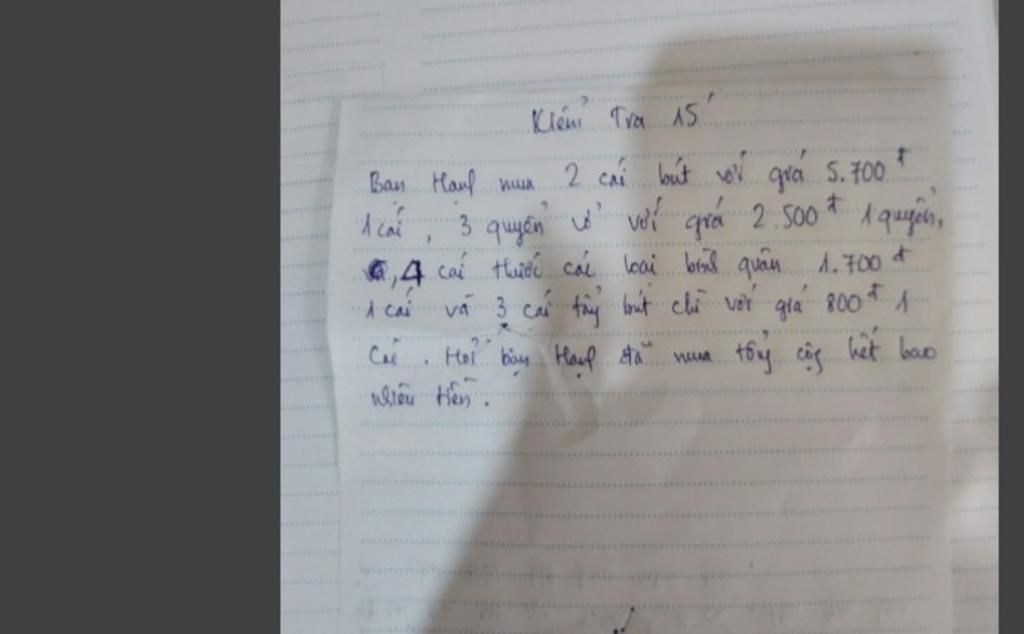 Kiểm Tra 15'
Bạn Hạnh mua 2 cái bút với giá 5.700đ
1 cái, 3 quyển vở với giá 2.500đ 1 quyển,
, 4 cái thước các loại bình quân 1.700đ
1 cái và 3 cái tẩy bút chì với giá 800đ 1
cái. Hỏi bạn Hạnh đã mua tổng cộng hết bao
nhiêu tiền.